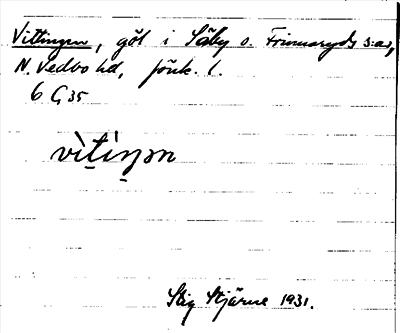 Vittingen, göl i Säby o. Frinnaryds s:ar,
N. Vedbo hd, Jönk. l.
6 G 35
vìt̤ìŋən
Stig Stjärne 1931.